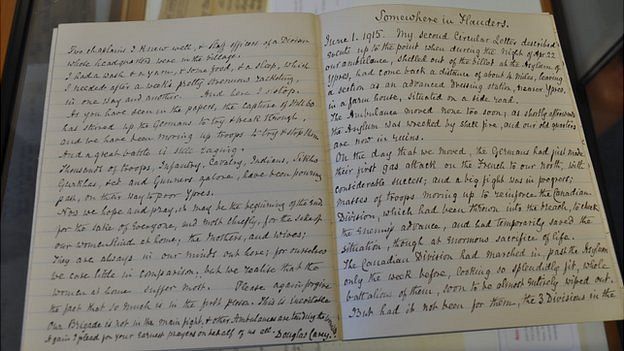 Two chaplains I knew well, & staff officers of a Division
whose headquarters were in the village.
I had a wash & a yarn, & some food, & a sleep, which
I needed after a week's pretty strenuous racketing,
in one way and another. And here I stop.
As you have seen in the papers, the capture of Hill 60
has stirred up the Germans to try & break through,
and we have been moving up troops to try & stop them
And a great battle is still raging.
Thousands of troops, Infantry, Cavalry, Indians, Sikhs
Gurkhas, &ct and Gunners galore, have been pouring
past, on their way to poor Ypres.
Now we hope and pray, it may be the beginning of the end
for the sake of everyone, and most chiefly, for the sake of
our womenkind at home, the Mothers, and Wives;
They are always in our minds out here; for ourselves
we care little in comparison, but we realise that the
women at home suffer most. Please again forgive
the fact that so much is in the first person. This is inevitable
Our Brigade is not in the main fight, & other Ambulances are tending the
Again I plead for your earnest prayers on behalf of us all. Douglas Carey.
Somewhere in Flanders.
June 1. 1915. My second Circular Letter described
events up to the point when during the night of Apr. 22
our ambulance, shelled out of the billet at the Asylum of
Ypres, had come back a distance of about 4 miles, leaving
a section as an advanced Dressing station, nearer Ypres,
in a farm house, situated on a side road.
The Ambulance moved none too soon, as shortly afterwards
the Asylum was wrecked by shell fire, and our old quarters
are now in ruins.
On the day that we moved, the Germans had just made
their first gas attack on the French to our north, with
considerable success; and a big fight was in progress;
masses of troops moving up to reinforce the Canadian
Division, which had been thrown into the breach, to check
the enemy's advance, and had temporarily saved the
situation, though at enormous sacrifice of life.
The Canadian Division had marched in past the Asylum
only the week before, looking so splendidly fit, whole
battalions of them, soon to be almost entirely wiped out.
But had it not been for them, the 3 Divisions in the